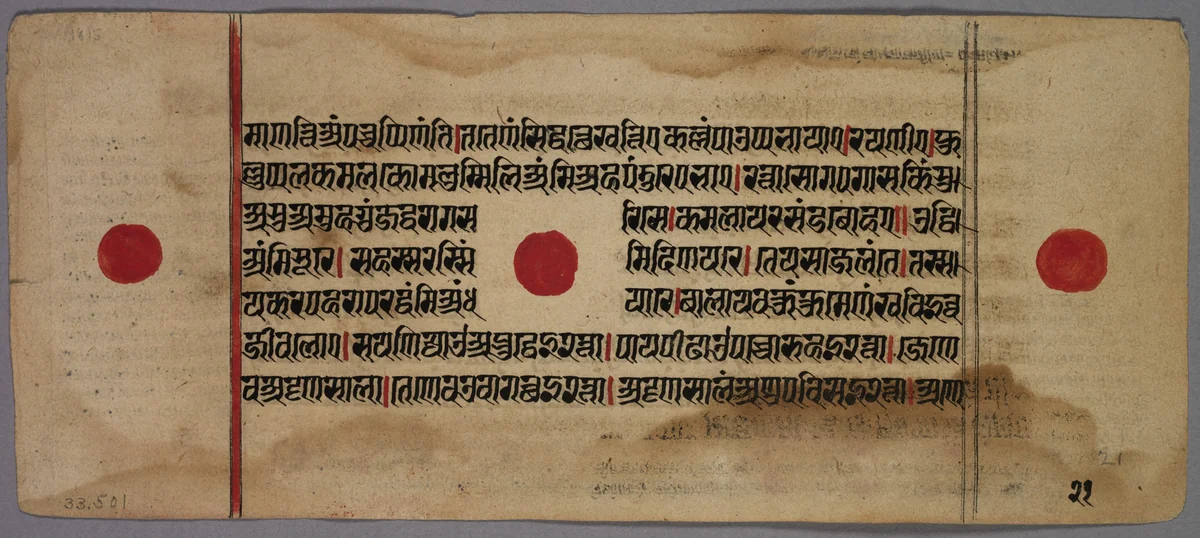 माणत्तिअं पच्चप्पिणंति।तते णं सिद्धत्थे खत्तिए कल्लं पाउप्पभायाए।रयणीए।फु
ल्लुप्पलकमलकोमलुम्मिलिअंमि अह पंडुरे पभाए।रत्तासोगपगासकिंसु
असुअमुहगुंजद्धरागसरिसे।कमलायरसंडबोहए॥उट्ठि
अंमि सूरे।सहस्सरस्सिंमि दिणयरे।तेयसा जलंते।तस्स
य करपहरापरद्धंमि अंधयारे।बालायवकुंकुमेणं खचिअव्व
जीवलोए।सयणिज्जाउ अब्भुट्ठेइ२त्ता।पायपीढाउ पच्चोरुहइ२त्ता।जेणे
व अट्टणसाला।तेणेव उवागच्छइ२त्ता।अट्टणसालं अणुपविसइ२त्ता।अणे
२१
21
33.501